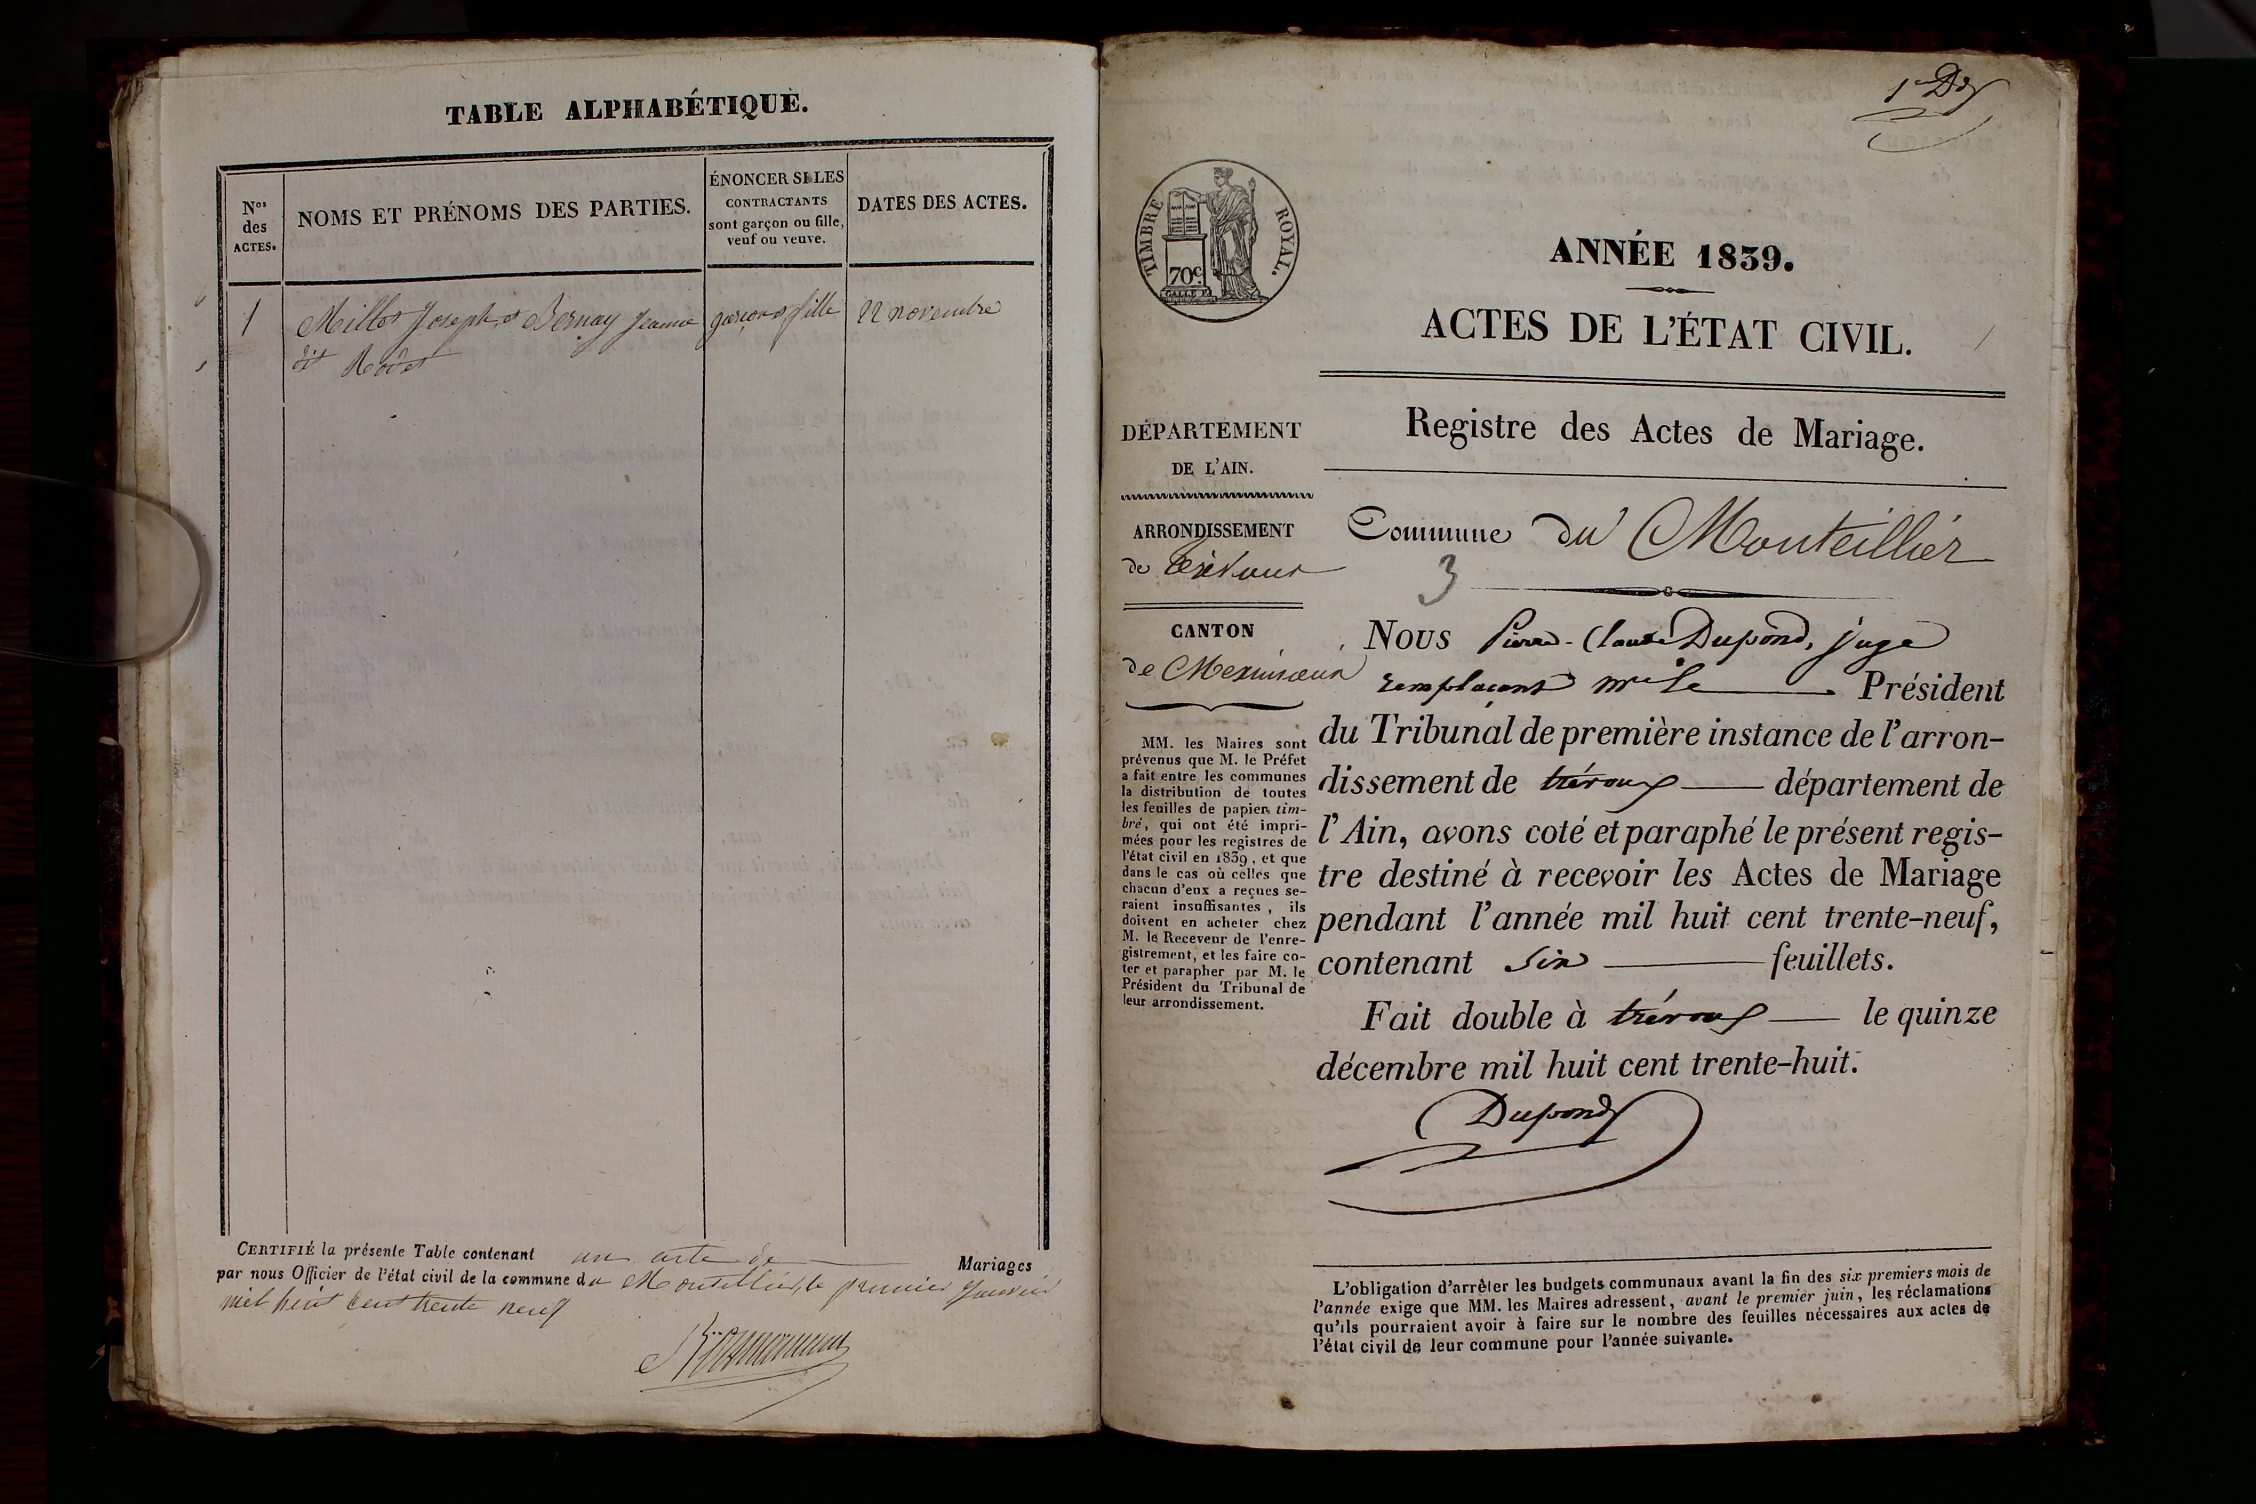 TABLE ALPHABÉTIQUE.
Nos des ACTES.
NOMS ET PRÉNOMS DES PARTIES.
ÉNONCER SI LES
CONTRACTANTS
sont garçon ou fille,
veuf ou veuve.
DATES DES ACTES.
1 Millot Joseph, et Bernay Jeanne garçon et fille 22 novembre
dit
CERTIFIÉ la présente Table contenant un acte de Mariages
par nous Officier de l'état civil de la commune du Montellier, le premier Janvier
mil huit cent trente neuf
1er
TIMBRE ROYAL.
70c.
ANNÉE 1839.
ACTES DE L'ÉTAT CIVIL.
Registre des Actes de Mariage.
DÉPARTEMENT
DE L'AIN.
ARRONDISSEMENT
de Trévoux
CANTON
de Meximieux
MM. les Maires sont
prévenus que M. le Préfet
a fait entre les communes
la distribution de toutes
les feuilles de papier tim-
bré, qui ont été impri-
mées pour les registres de
l'état civil en 1839, et que
dans le cas où celles que
chacun d'eux a reçues se-
raient insuffisantes, ils
doivent en acheter chez
M. le Receveur de l'enre-
gistrement, et les faire co-
ter et parapher par M. le
Président du Tribunal de
leur arrondissement.
Commune du Monteillier
3
NOUS Pierre-Claude Dupond, juge
remplaçant mr le Président
du Tribunal de première instance de l'arron-
dissement de trévoux département de
l'Ain, avons coté et paraphé le présent regis-
tre destiné à recevoir les Actes de Mariage
pendant l'année mil huit cent trente-neuf,
contenant six feuillets.
Fait double à trévoux le quinze
décembre mil huit cent trente-huit.
Dupond
L'obligation d'arrêter les budgets communaux avant la fin des six premiers mois de
l'année exige que MM. les Maires adressent, avant le premier juin, les réclamations
qu'ils pourraient avoir à faire sur le nombre des feuilles nécessaires aux actes de
l'état civil de leur commune pour l'année suivante.